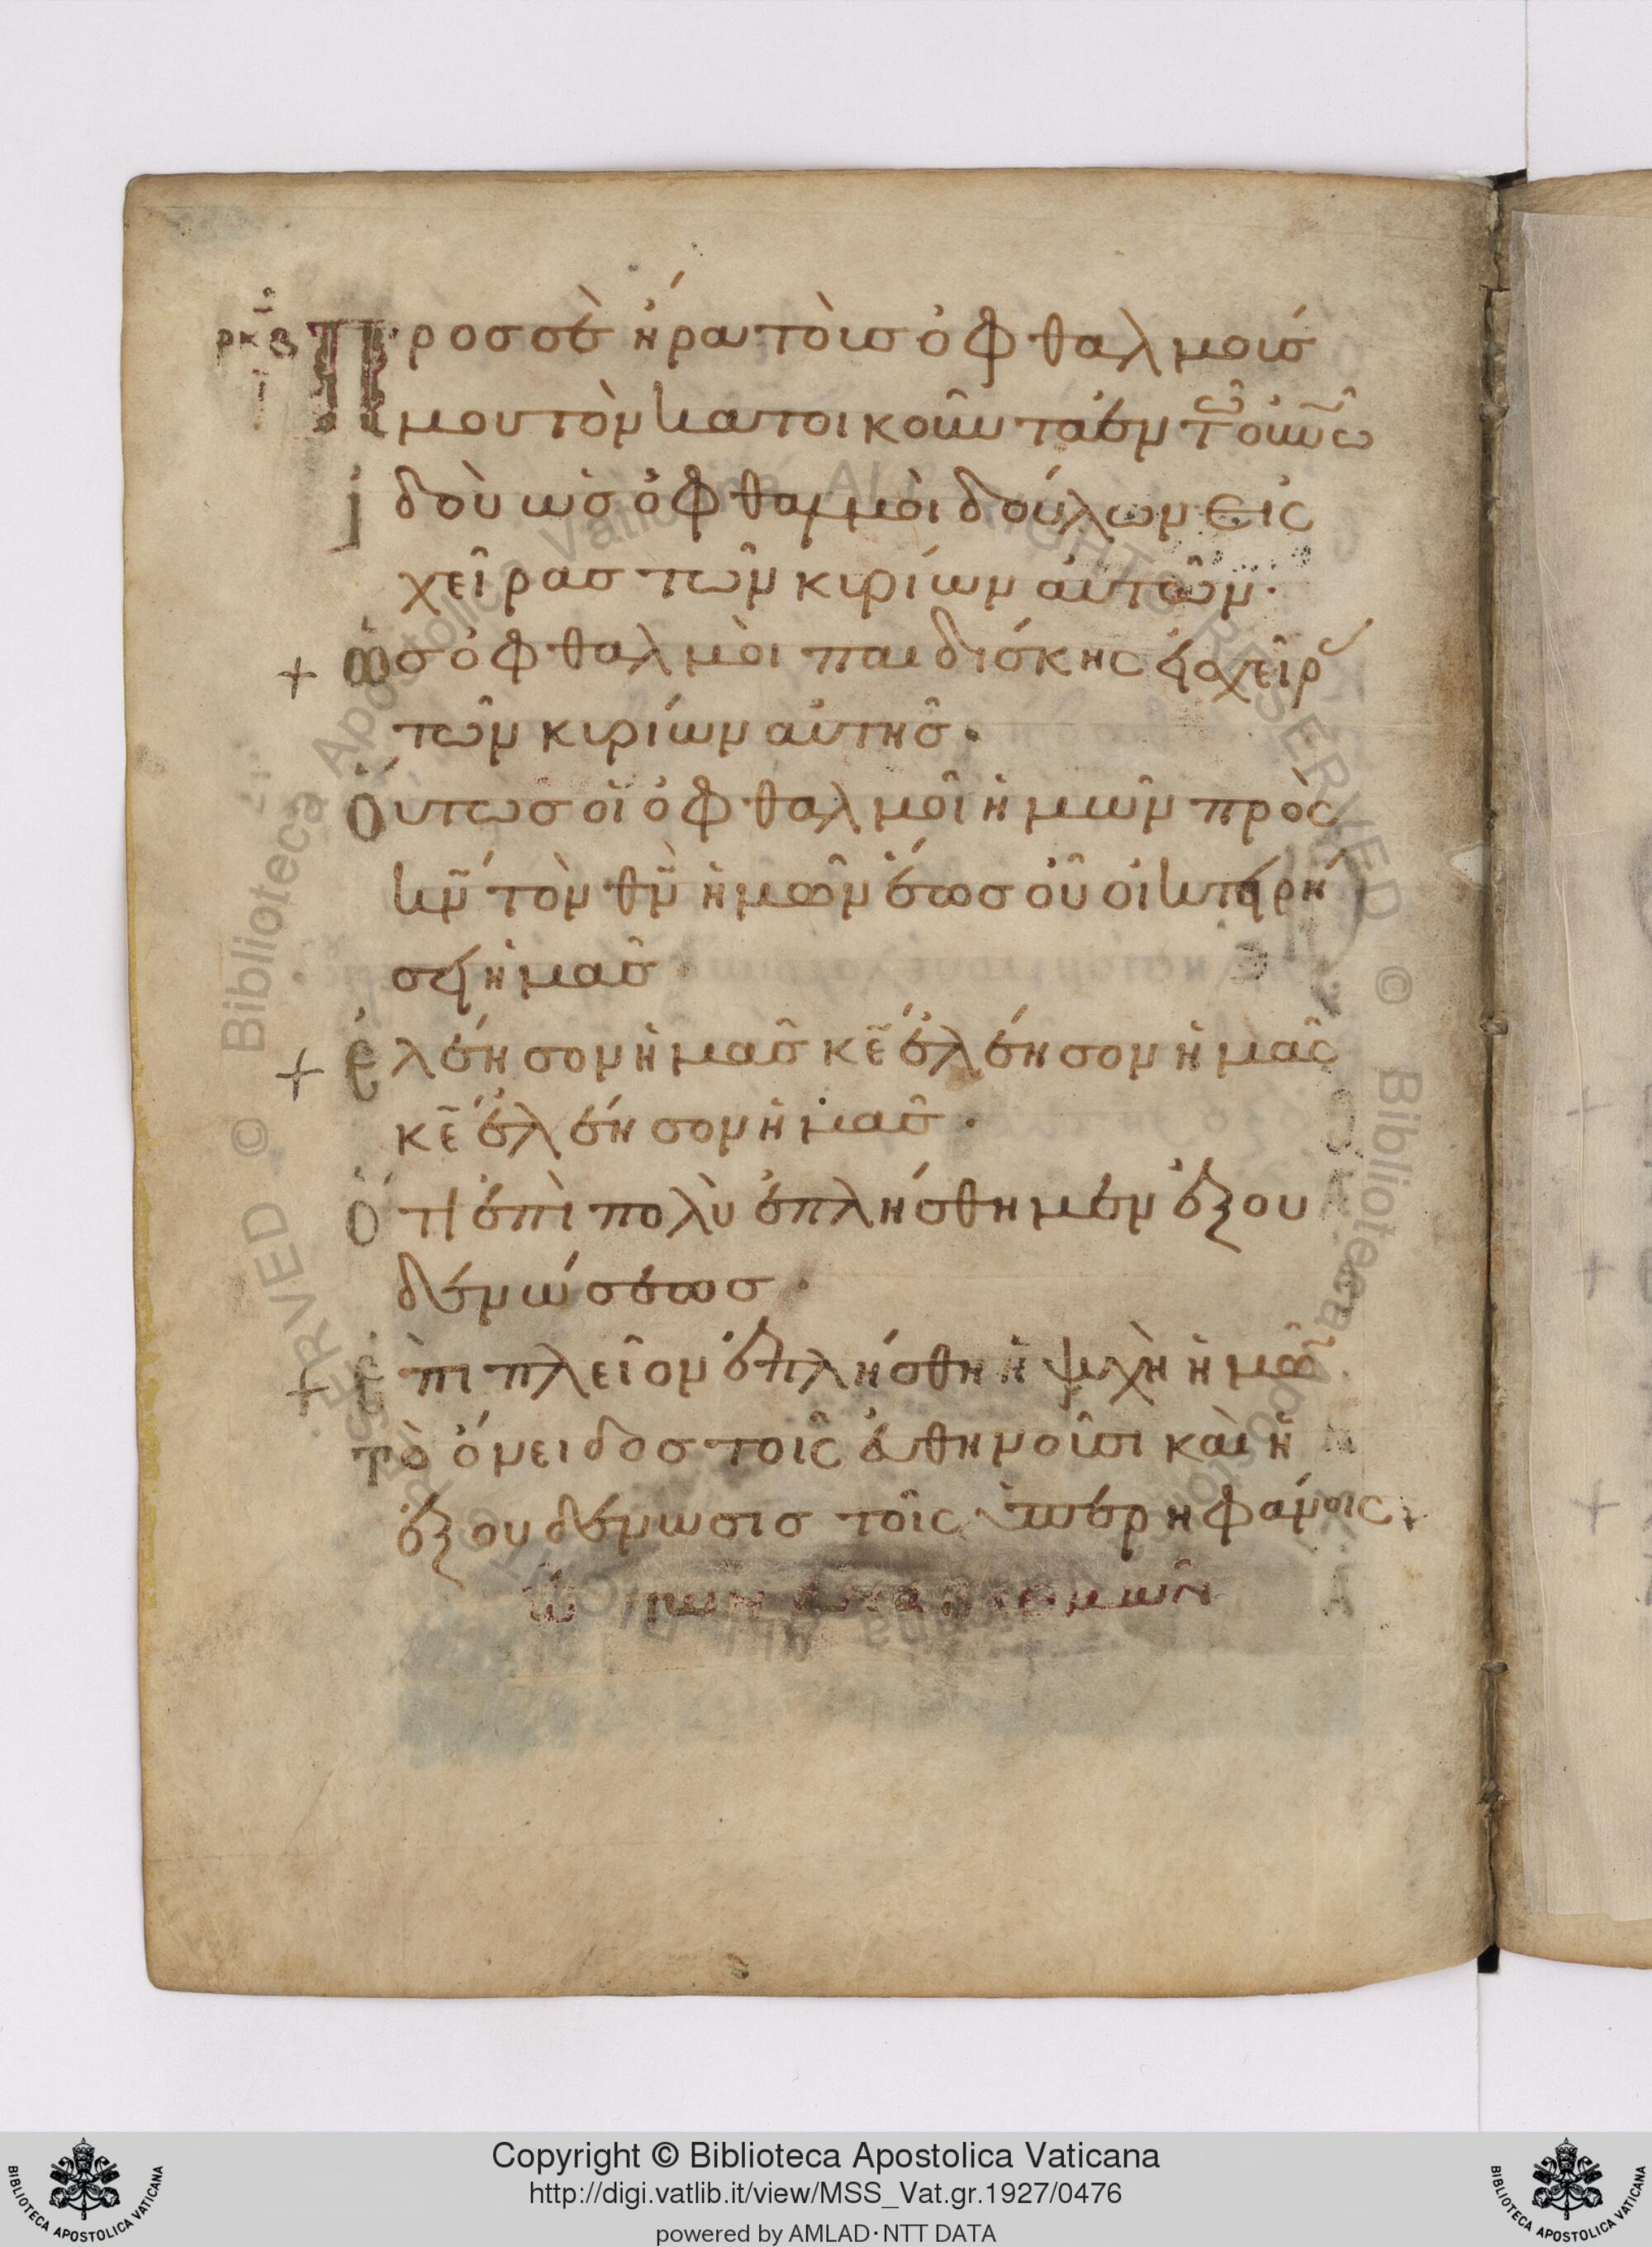 ρκβ Προσσὲ ἦρα τοὶσ ὀφθαλμοίσ
μου τὸν κατοικοῦντα ἐν τῶ οὐνῶ
ϊδοὺ ὡσ ὀφθαλμοὶ δούλων εἰς
χεῖρασ τῶν κυρίων αὐτῶν·
+ ὡσ ὀφθαλμοὶ παιδίσκης εἰσ χεῖρ
τῶν κυρίων αὐτῆσ·
Οὕτωσ οἱ ὀφθαλμοῖ ἡμῶν πρὸς
κν τὸν θν ἡμῶν ἕωσ οὗ οἰκτειρή
σει ἡμᾶσ
+ ἐλέησον ἡμᾶσ κε ἐλέησον ἡμᾶς
κε ἐλέησον ἡμᾶσ·
Ὅτι ἐπὶ πολὺ ἐπλήσθημεν ἐξου
δενώσεωσ·
+ ἐπι πλεῖον ἐπλήσθη ἡ ψυχὴ ἡμῶ
τὸ ὄνειδοσ τοῖς εὐθηνοῦσι καὶ ἡ
ἐξουδένωσισ τοῖς ὑπερηφάνοις·
ὠ τῶν ἀναβαθμῶν
Copyright © Biblioteca Apostolica Vaticana
http://digi.vatlib.it/view/MSS_Vat.gr.1927/0476
powered by AMLAD·NTT DATA
BIBLIOTECA APOSTOLICA VATICANA
BIBLIOTECA APOSTOLICA VATICANA